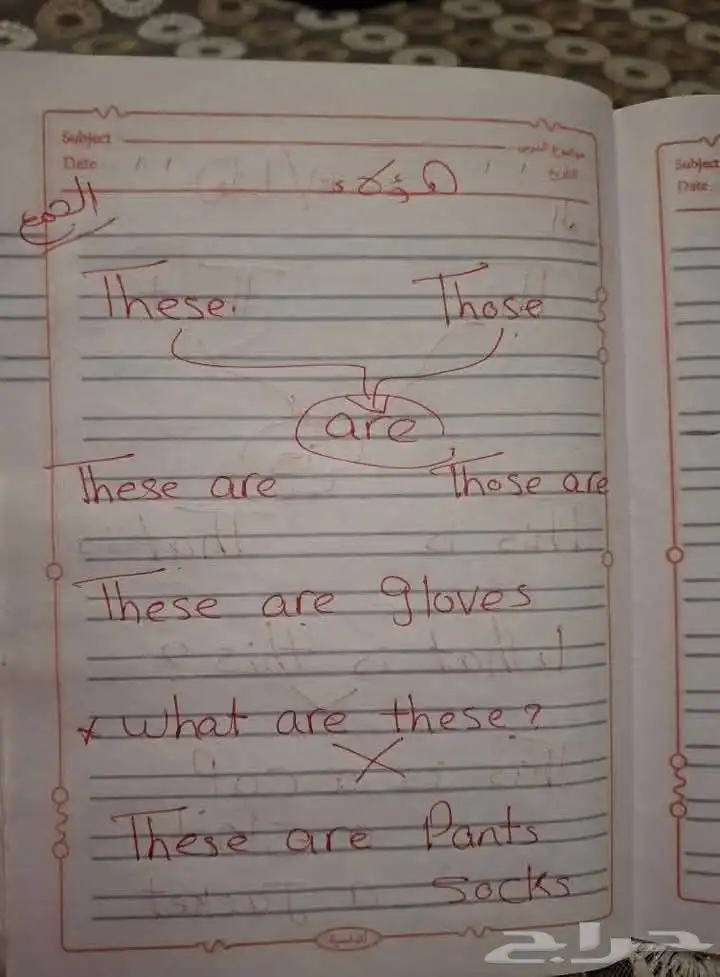 Subject موضوع الدرس
Date / / / / التاريخ
هؤلاء
الجمع
These Those
are
These are Those are
These are gloves
x What are these?
These are Pants
socks
Subject
Date
حراج